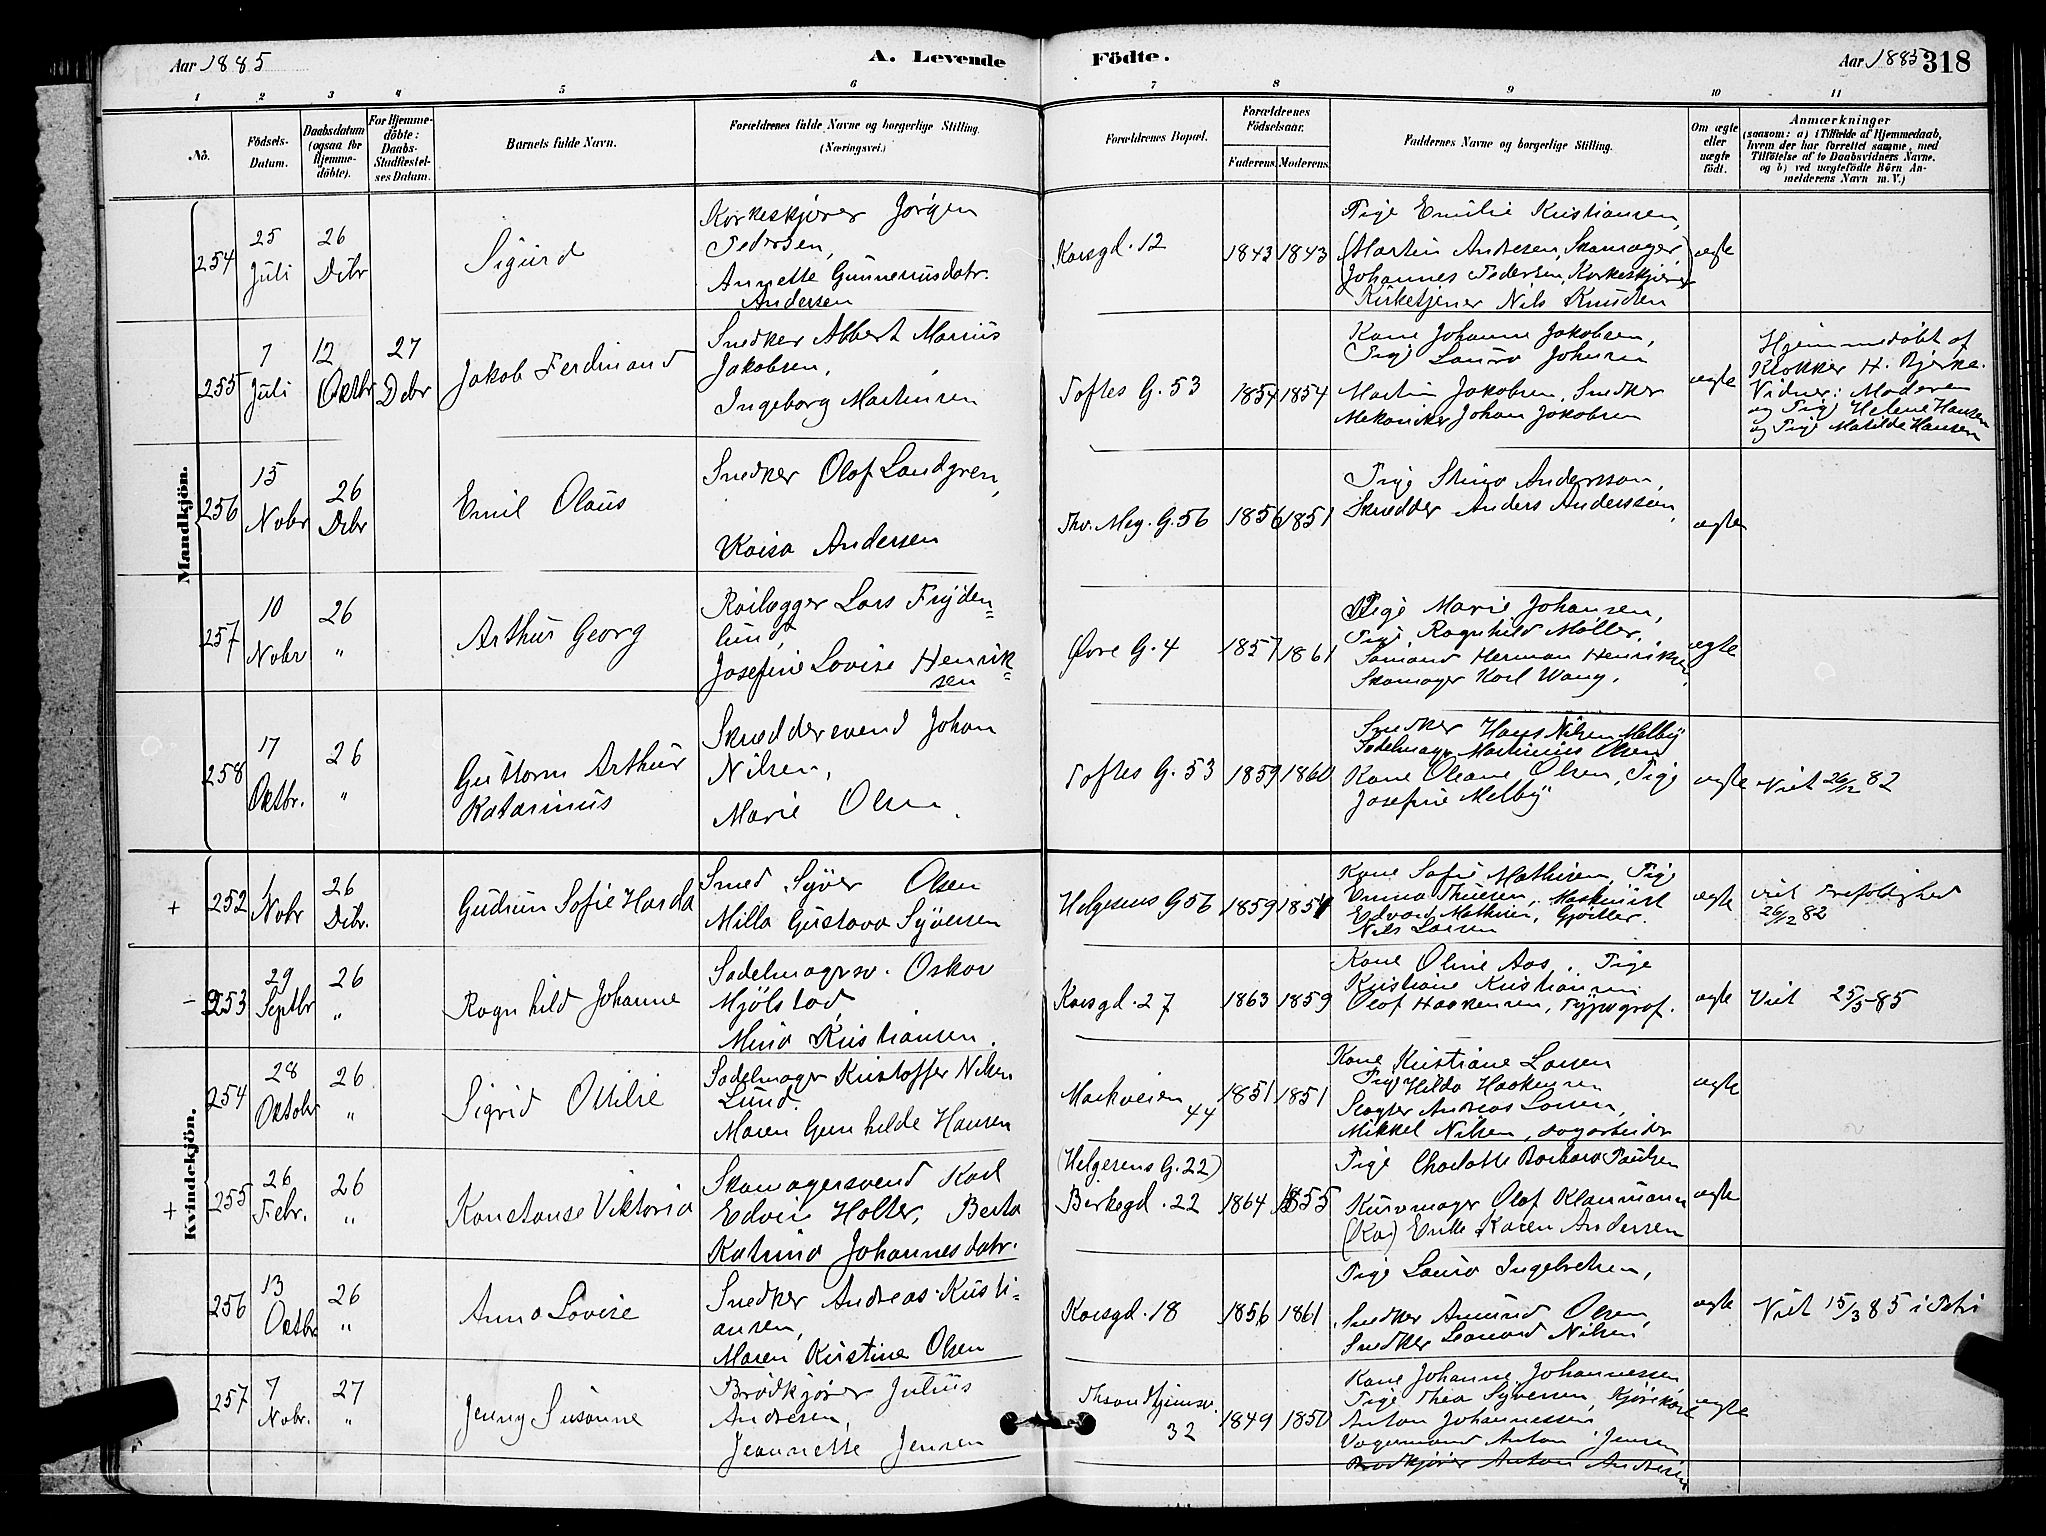 Aar 1885
A. Levende
Födte.
Aar 1885
318
1 2 3 4 5 6 7 8 9 10 11
No.
Födsels-Datum.
Daabsdatum (ogsaa for Hjemmedöbte).
For Hjemmedöbte: Daabs-Stadfæstelses Datum.
Barnets fulde Navn.
Forældrenes fulde Navne og borgerlige Stilling. (Næringsvei.)
Forældrenes Bopæl.
Forældrenes Födselsaar.
Faderens. Moderens.
Faddernes Navne og borgerlige Stilling.
Om ægte eller uægte födt.
Anmærkninger
(saasom: a) i Tilfælde af Hjemmedaab, hvem der har forrettet samme, med Tilföielse af to Daabsvidners Navne, og b) ved uægtefödte Börn Anmelderens Navn m. V.)
Mandkjön.
254
25 Juli
26 Debr
Sigurd
Kørkeskjører Jørgen
Pedersen,
Annette Gunneriusdatr.
Andersen
Korsgd. 12
1843 1843
Pige Emilie Kristiansen,
(Martin Andresen, Skomager)
Johannes Pedersen, Korkeskjører
Kirketjener Nils Knudsen
ægte
255
7 Juli
12 Oktbr
27 Debr
Jakob Ferdinand
Snedker Albert Marius
Jakobsen,
Ingeborg Martinsen
Toftes G. 53
1854 1854
Kone Johanne Jakobsen,
Pige Laura Johnsen
Martin Jakobsen, Snedker
Mekaniker Johan Jakobsen
ægte
Hjemmedøbt af
Klokker H. Bjerke.
Vidner: Moderen
og Pige Helene Hansen
og Pige Matilde Hansen
256
15 Nobr
26 Debr
Emil Olaus
Snedker Olof Landgren,
Kaisa Andersen
Thv. Mey. G. 56
1856 1851
Pige Stina Andersson,
Skrædder Anders Andersson
ægte
257
10 Nobr
26 "
Arthur Georg
Roilægger Lars Fryden=
lund,
Josefine Lovise Henrik=
sen
Øvre G. 4
1857 1861
Pige Marie Johansen,
Pige Ragnhild Møller,
Sømand Herman Henriksen,
Skomager Karl Wang.
ægte
258
17 Oktbr.
26 "
Guttorm Arthur
Katarinus
Skræddersvend Johan
Nilsen,
Marie Olsen
Toftes G. 53
1859 1860
Snedker Hans Nilsen Melby
Sadelmager Martinius Olsen
Kone Oleane Olsen, Pige
Josefine Melby
ægte
Viet 26/12 82
Kvindekjön.
+ 252
1 Nobr
26 Debr.
Gudrun Sofie Harda
Smed Syver Olsen
Milla Gustava Syversen
Helgesens G 56
1859 1854
Kone Sofie Mathisen, Pige
Emma Thuesen, Maskinist
Edvard Mathisen, Gjørtler
Nils Larsen
ægte
viet Trefoldighed
26/12 82
- 253
29 Septbr
26 "
Ragnhild Johanne
Sadelmagersv. Oskar
Mjølstad,
Mina Kristiansen.
Korsgd. 27
1863 1859
Kone Oline Aas, Pige
Kristiane Kristiansen
Olof Haakensen, Typograf.
ægte
Viet 25/5-85
254
28 Oktobr
26 "
Sigrid Ottilie
Sadelmager Kristoffer Nilsen
Lund.
Maren Gunhilde Hansen
Markveien
44
1851 1851
Kone Kristiane Larsen
Pige Hilda Haakensen
Slagter Andreas Larsen,
Mikkel Nilsen, dagarbeider
ægte
+ 255
26 Febr.
26 "
Konstanse Viktoria
Skomagersvend Karl
Edvin Holter, Berta
Katrina Johannesdatr.
(Helgesens G. 22)
Birkegd. 22
1864 1855
Pige Charlotte Barbara Paulsen
Kurvmager Olof Klarmann
(Ka) Enke Karen Andersen
ægte
256
13 Oktbr
26 "
Anna Lovise
Snedker Andreas Kristi-
ansen,
Maren Kristine Olsen
Korsgd. 18
1856 1861
Pige Laura Ingebretsen,
Snedker Amund Olsen,
Snedker Leonard Nilsen
ægte
Viet 15/3 85 i Petri
257
7 Nobr.
27 "
Jenny Susanne
Brødkjører Julius
Andresen,
Jeannette Jensen
Throndhjemsv.
32
1849 1850
Kone Johanne Johannessen
Pige Thea Syversen, Kjørekarl
Anton Johannessen
Vognmand Anton Jensen
Brødkjører Anton Andresen
ægte